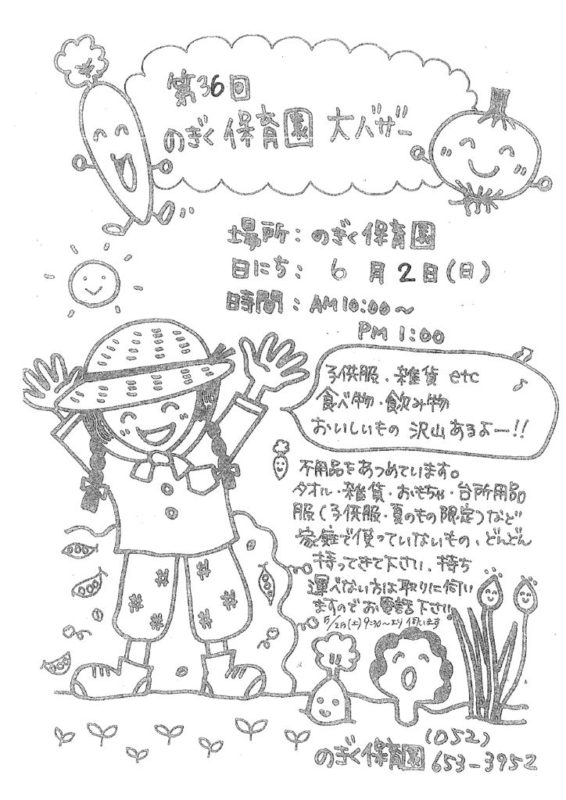 第36回
のぎく保育園 大バザー
場所：のぎく保育園
日にち：6月2日(日)
時間：AM10:00〜
PM1:00
子供服・雑貨 etc
食べ物・飲み物
おいしいもの 沢山あるよー!!
不用品をあつめています。
タオル・雑貨・おもちゃ・台所用品
服(子供服・夏のもの限定)など
家庭で使っていないもの、どんどん
持ってきて下さい。持ち
運べない方は取りに伺い
ますのでお電話下さい
(土)9:30〜より伺います
(052)
のぎく保育園 653-3952